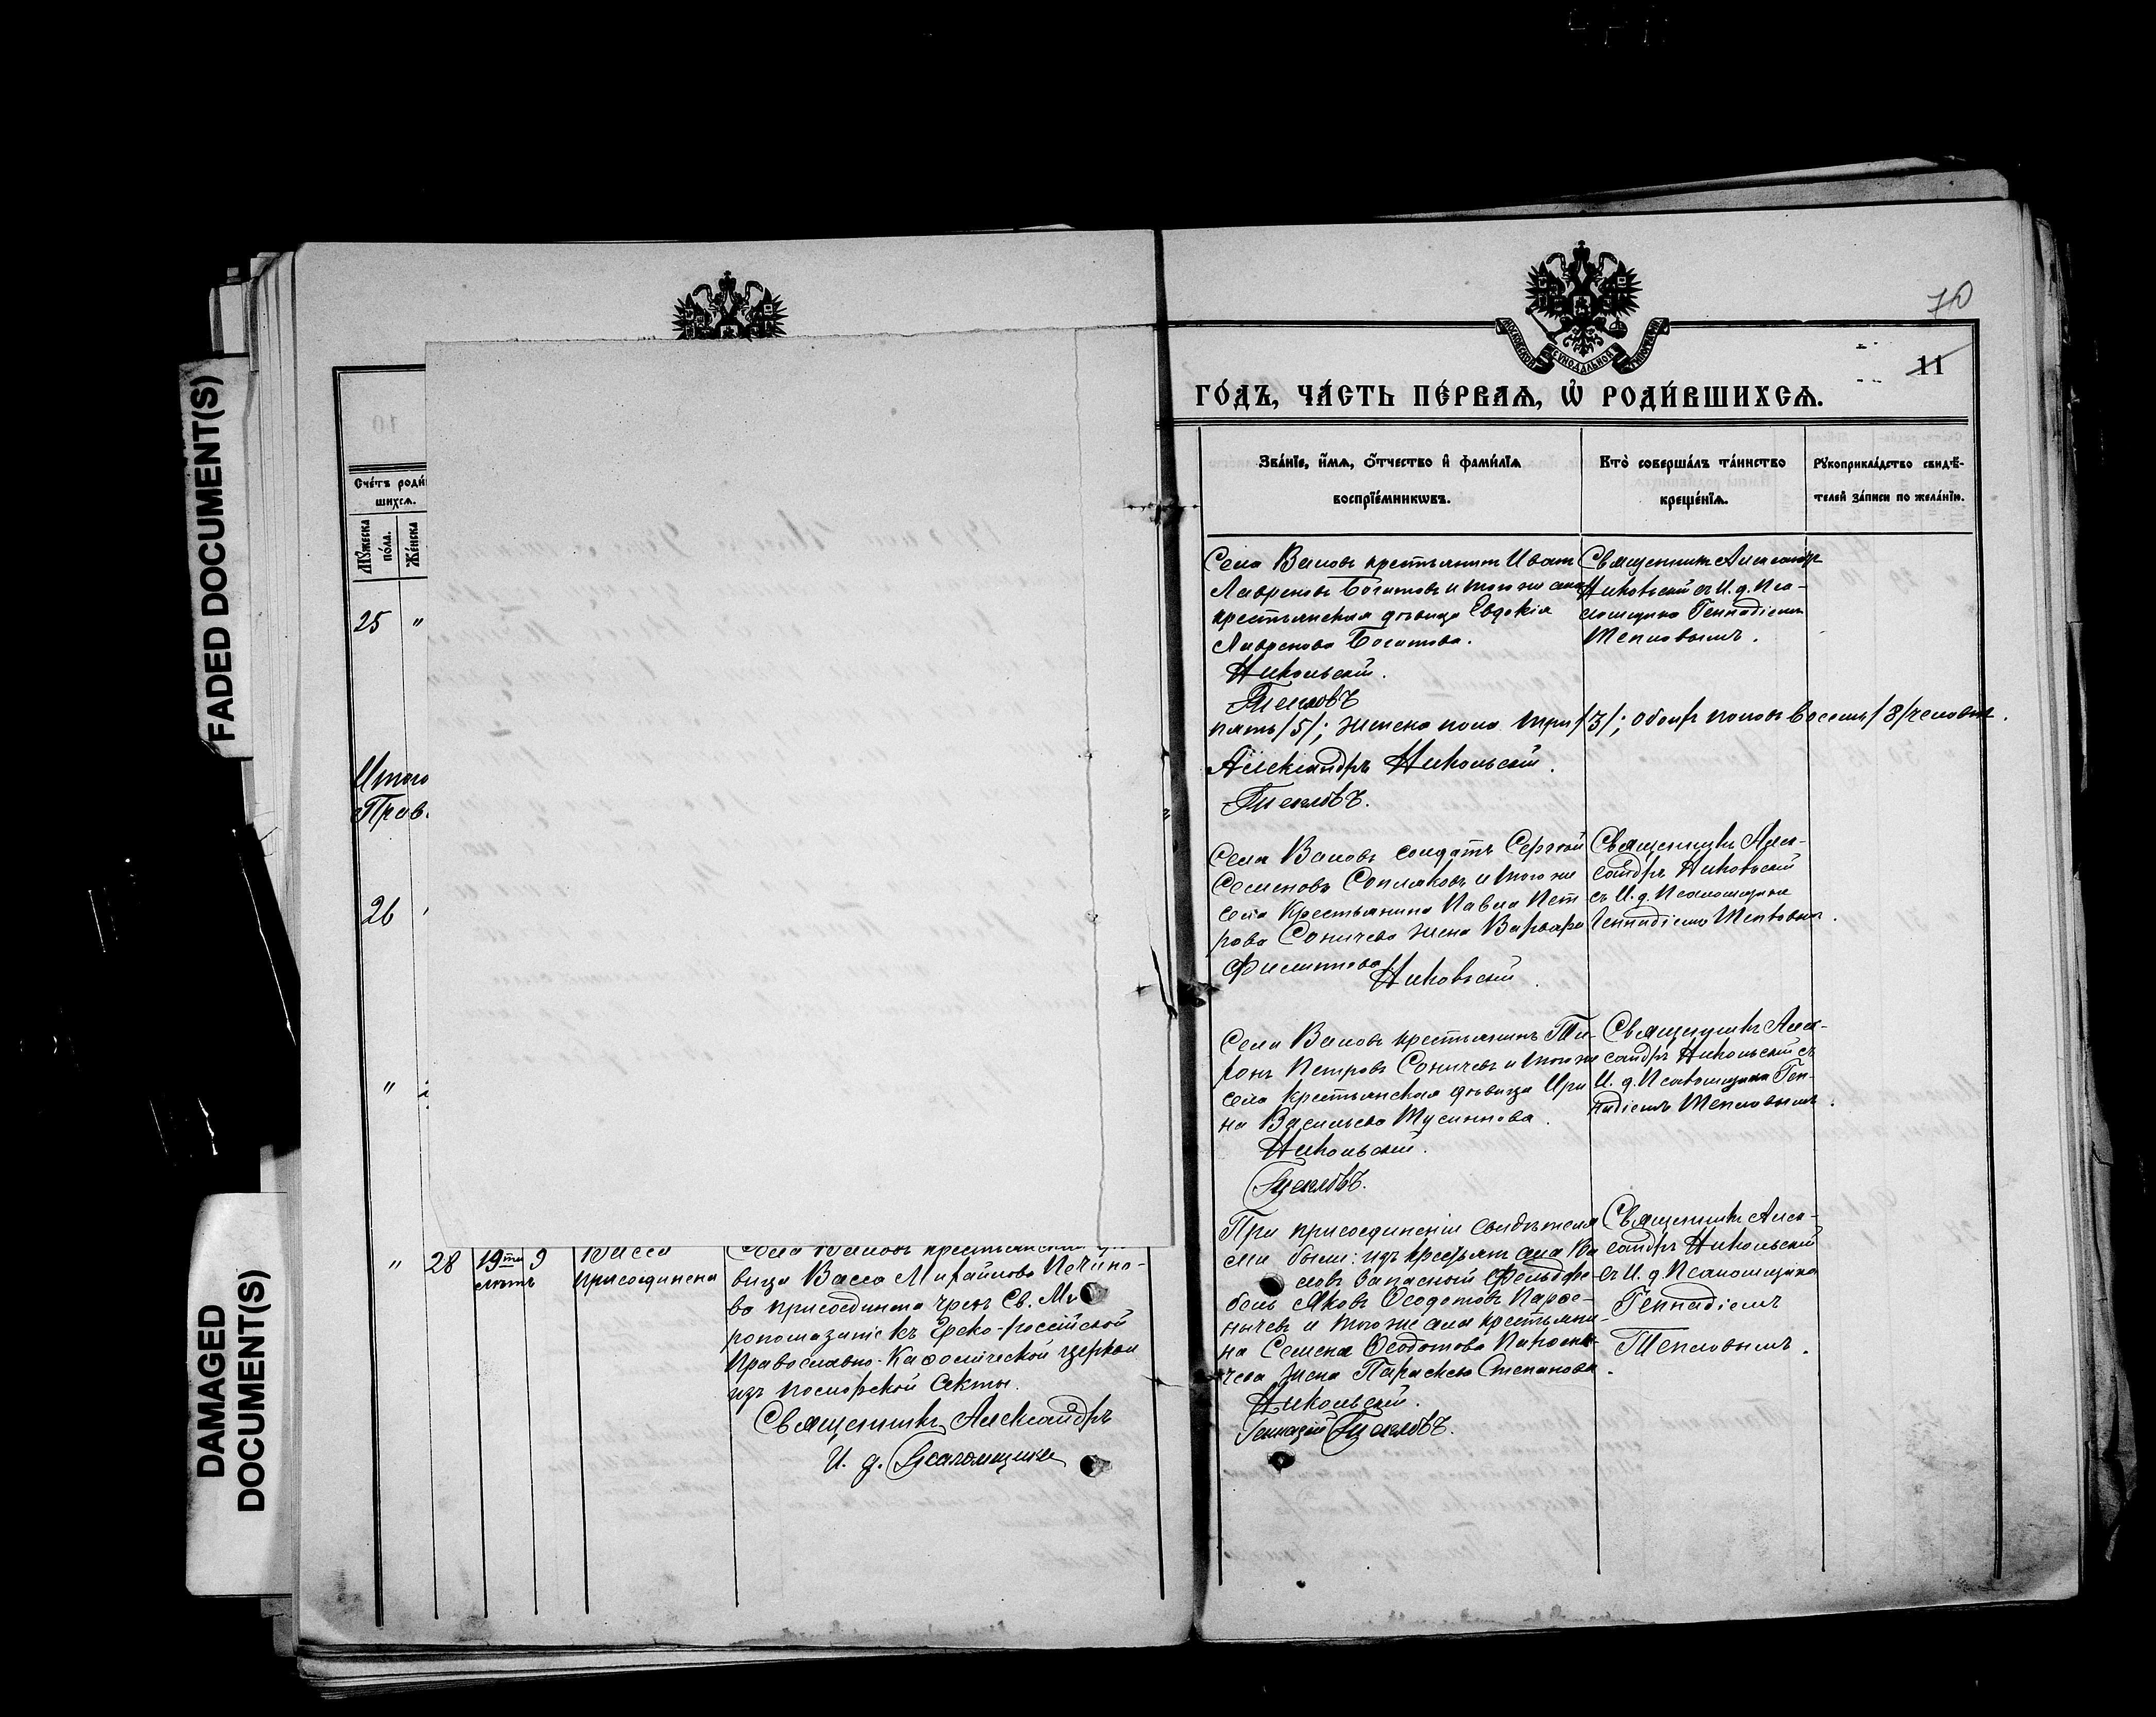 FADED DOCUMENT(S)
DAMAGED
DOCUMENT(S)
10
Сче́тъ роди́
шихсѧ.
Мꙋжеска
по́ла.
Же́нска
25 "
Итого
Прав.
26
"
" 28 19ти 9 Васса
лѣтъ присоединена
Села Валовъ крестьянская
вица Васса Михайлова Печино-
ва присоединена чрезъ Св. Ми
ропомазаніе къ Греко-россійской
Православно-Каѳолической церкви
изъ поморской секты.
Священникъ Александръ
И. д. Псаломщика
70
11
МОСКОВСКОЙ СѴНОДАЛЬНОЙ ТИПОГРАФІИ
ГО́ДЪ, ЧА́СТЬ ПЕ́РВАѦ, Ѽ РОДИ́ВШИХСѦ.
Зва́нїе, и҆́мѧ, ѻ҆́тчество и҆ фами́лїѧ
воспрїе́мникѡвъ.
Кто̀ соверша́лъ та́инство
креще́нїѧ.
Рꙋкоприкла́дство свидѣ́-
телей за́писи по жела́нїю.
Села Валовъ крестьянинъ Иванъ
Лавреновъ Богатовъ и того же села
крестьянская дѣвица Евдокія
Лавренова Богатова.
Никольскій.
Тепловъ
Священникъ Александръ
Никольскій съ И. д. Пса-
ломщика Геннадіемъ
Тепловымъ.
пять /5/; женска пола три /3/; обоихъ половъ восемь /8/ человѣкъ.
Александръ Никольскій.
Тепловъ.
Села Валовъ солдатъ Сергѣй
Семеновъ Сопляковъ и того же
села крестьянина Павла Пет
рова Соничева жена Варвара
Филиппова
Никольскій
Священникъ Алек-
сандръ Никольскій
съ И. д. Псаломщика
Геннадіемъ Тепловымъ.
Села Валовъ крестьянинъ Ти-
хонъ Петровъ Соничевъ и того же
села крестьянская дѣвица Ири
на Васильева
Никольскій.
Тепловъ.
Священникъ Алек-
сандръ Никольскій съ
И. д. Псаломщика Ген-
надіемъ Тепловымъ.
При присоединеніи свидѣтеля
ми были: изъ крестьянъ села Ва
ловъ запасный фельдфе-
бель Яковъ Ѳеодотовъ
и того же села крестьяни-
на Семена Ѳеодотова
чева жена Параскева Степанова.
Никольскій.
Геннадій Тепловъ.
Священникъ Алек-
сандръ Никольскій
съ И. д. Псаломщика
Геннадіемъ
Тепловымъ.